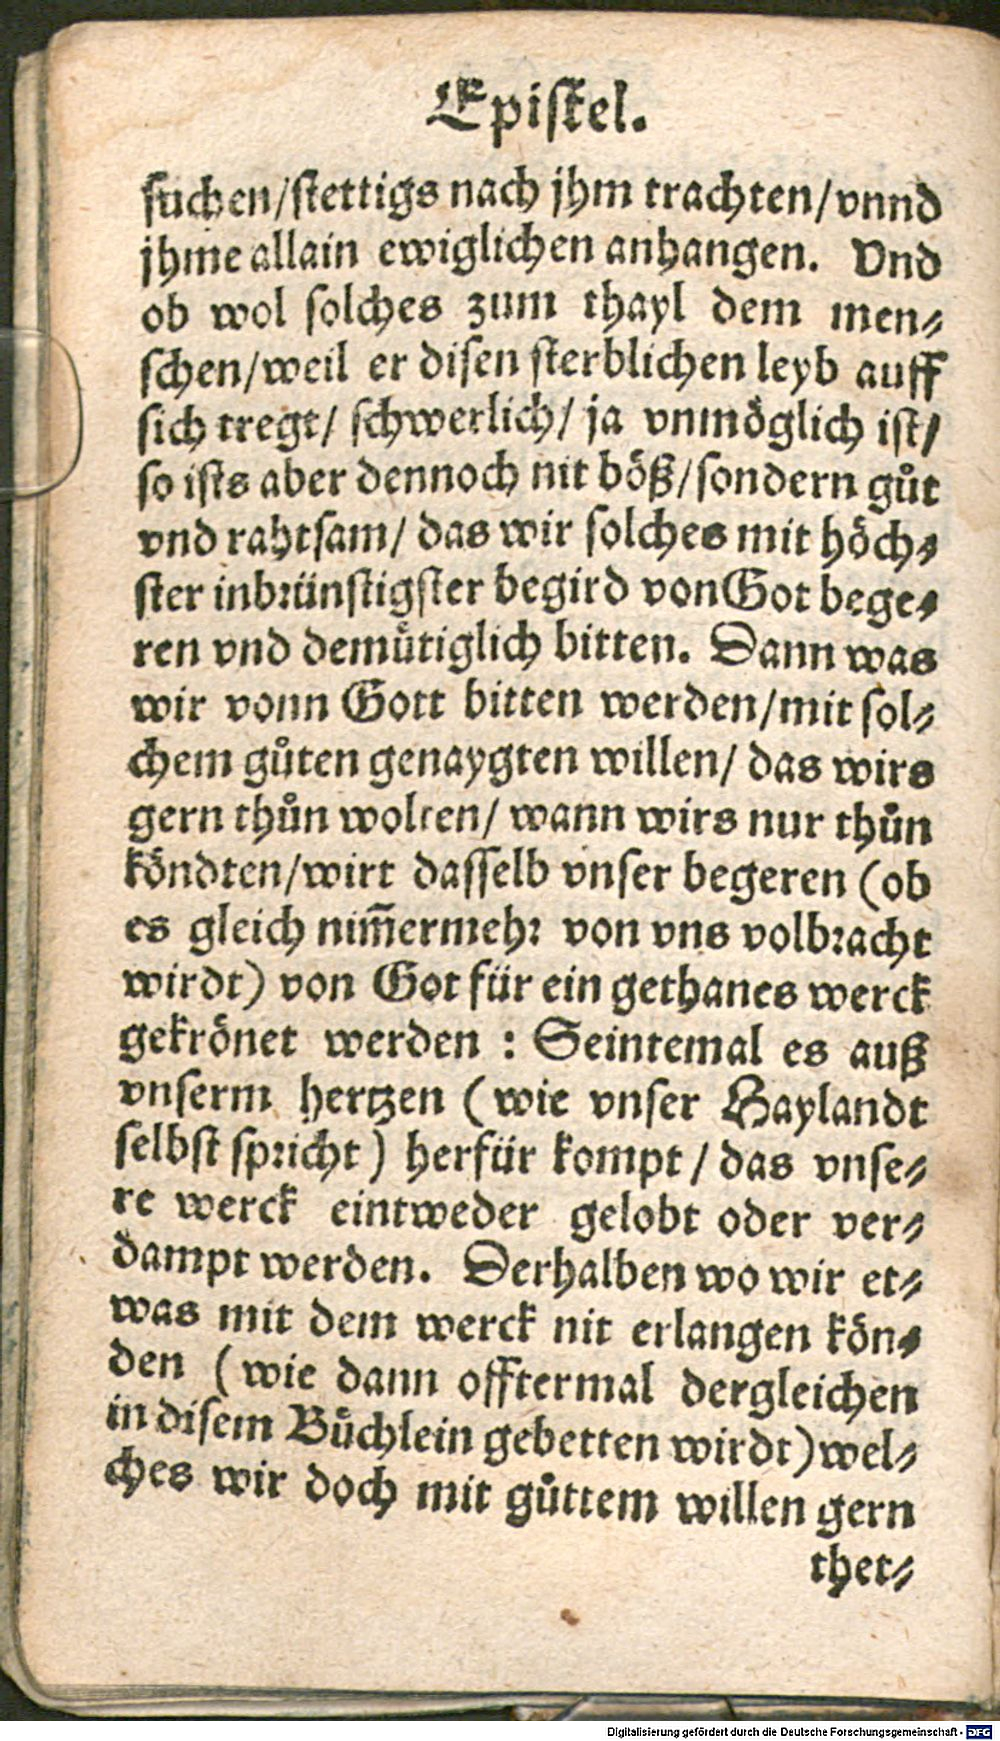 Epistel.
suchen/stettigs nach jhm trachten/vnnd
jhme allain ewiglichen anhangen. Vnd
ob wol solches zum thayl dem men⸗
schen/weil er disen sterblichen leyb auff
sich tregt/ schwerlich/ ja vnmöglich ist/
so ists aber dennoch nit böß/sondern gůt
vnd rahtsam/ das wir solches mit höch⸗
ster inbrünstigster begird von Got bege⸗
ren vnd demůtiglich bitten. Dann was
wir vonn Gott bitten werden/mit sol⸗
chem gůten genaygten willen/ das wirs
gern thůn wolten/ wann wirs nur thůn
köndten/wirt dasselb vnser begeren (ob
es gleich nim̄ermehr von vns volbracht
wirdt) von Got für ein gethanes werck
gekrönet werden : Seintemal es auß
vnserm hertzen (wie vnser Haylandt
selbst spricht) herfür kompt/das vnse⸗
re werck eintweder gelobt oder ver⸗
dampt werden. Derhalben wo wir et⸗
was mit dem werck nit erlangen kön⸗
den (wie dann offtermal dergleichen
in disem Bůchlein gebetten wirdt) wel⸗
ches wir doch mit gůttem willen gern
thet⸗
Digitalisierung gefördert durch die Deutsche Forschungsgemeinschaft - DFG